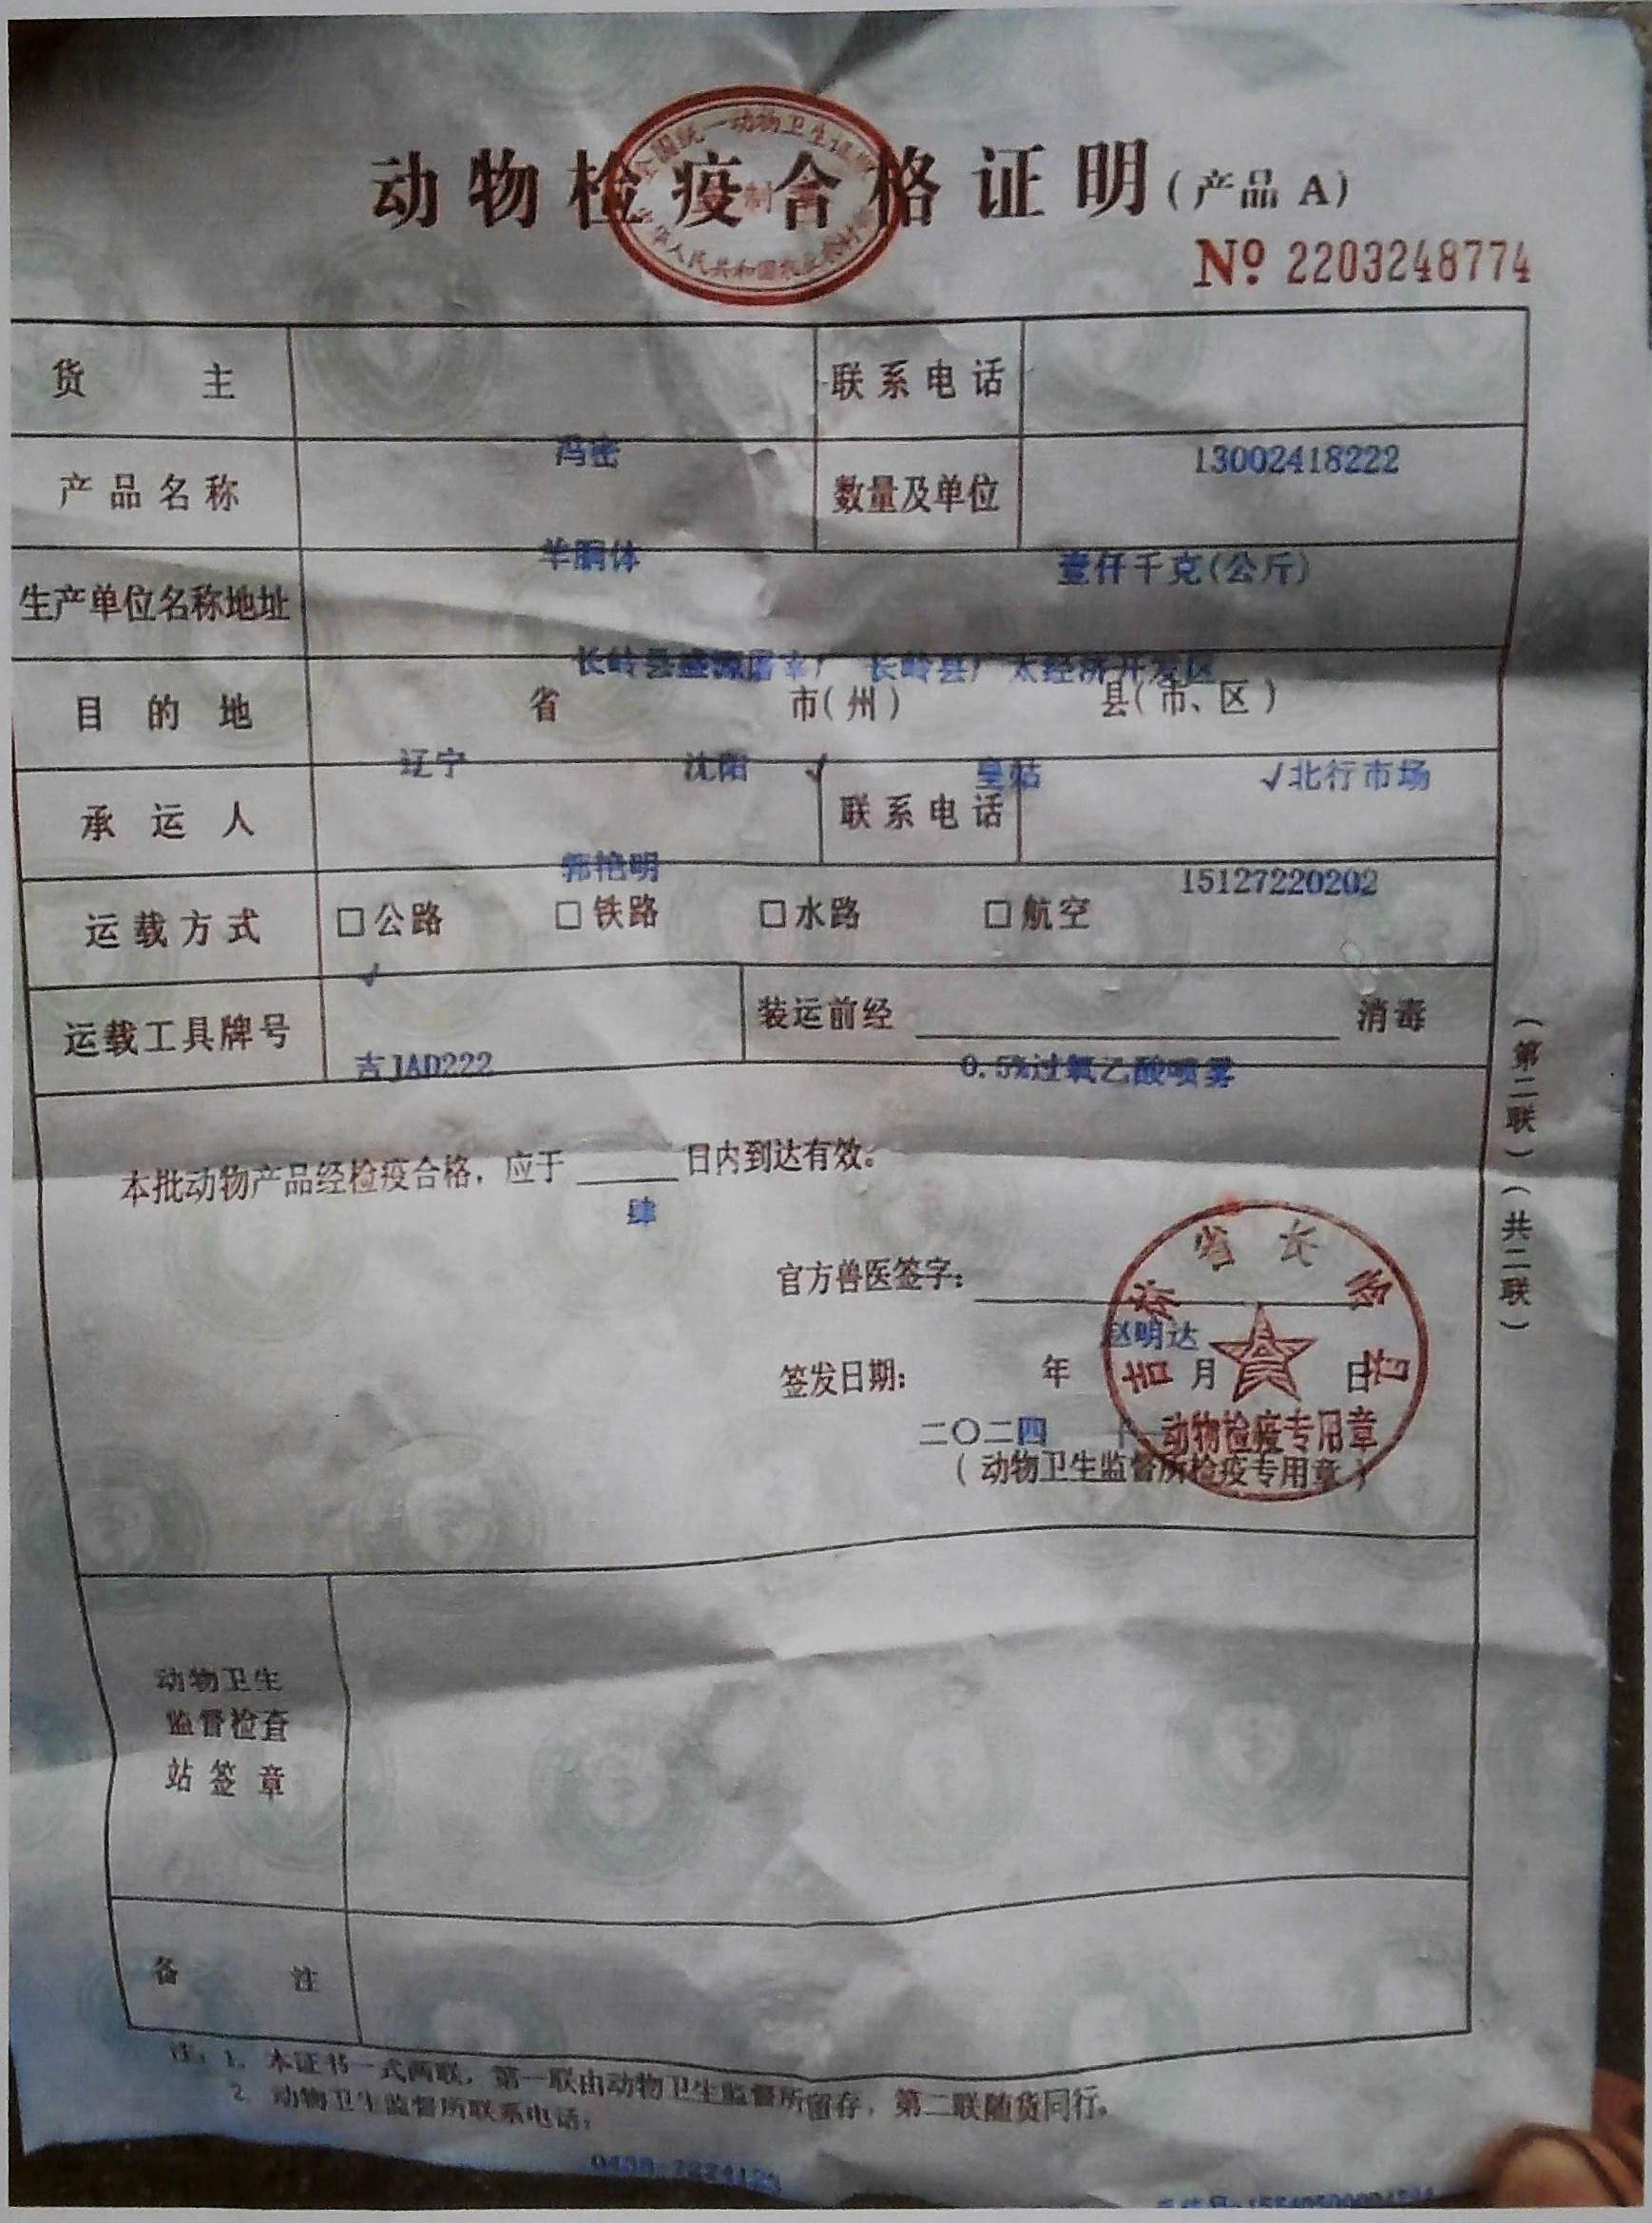 全国统一动物卫生证
动物检疫合格证明(产品 A)
制
华人民共和国农业
№ 2203248774
货 主 联系电话
冯密 13002418222
产品名称 数量及单位
羊胴体 壹仟千克(公斤)
生产单位名称地址
长岭县盛源屠宰厂 长岭县广太经济开发区
目的地 省 市(州) 县(市、区)
辽宁 沈阳 √ 皇姑 √北行市场
承运人 联系电话
郭艳明 15127220202
运载方式 □公路 □铁路 □水路 □航空
√
运载工具牌号 装运前经 消毒
吉JAD222 0.5%过氧乙酸喷雾
本批动物产品经检疫合格，应于 日内到达有效。
肆
官方兽医签字：
赵明达
签发日期： 年 月 日
二〇二四 十
(动物卫生监督所检疫专用章)
吉林省长岭县
动物检疫专用章
(第二联)(共二联)
动物卫生
监督检查
站签章
备 注
注：1. 本证书一式两联，第一联由动物卫生监督所留存，第二联随货同行。
2. 动物卫生监督所联系电话：